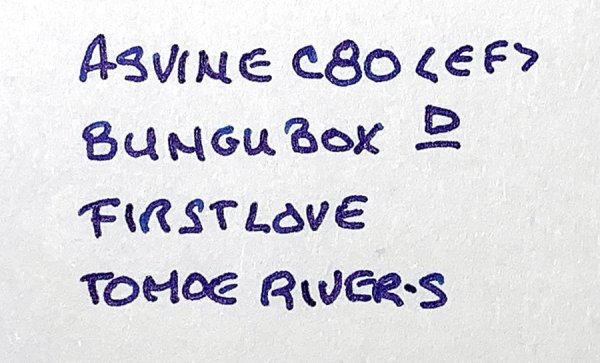 ASVINE C80 <EF>
BUNGUBOX D
FIRST LOVE
TOMOE RIVER·S